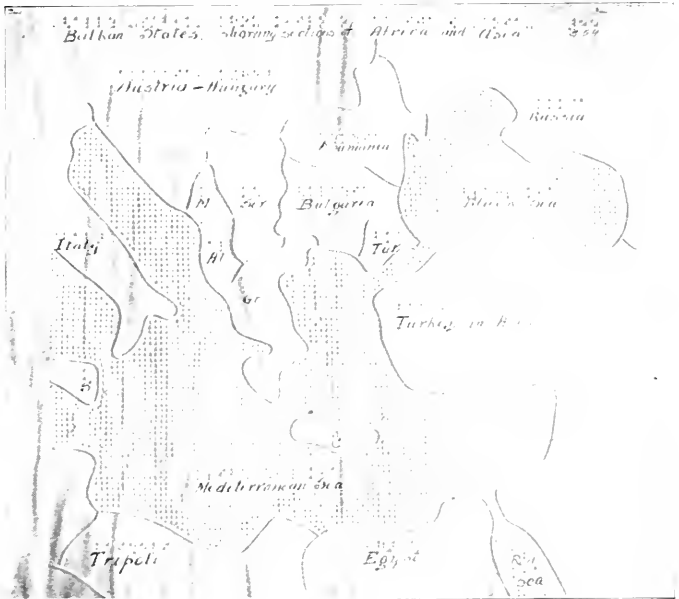 Balkan States. showing sections of Africa and Asia
Austria-Hungary
Russia
Rumania
M Ser Bulgaria Black Sea
Italy Al Tur
Gr
Turkey in
S
Mediterranean Sea
Tripoli Egypt Red
Sea